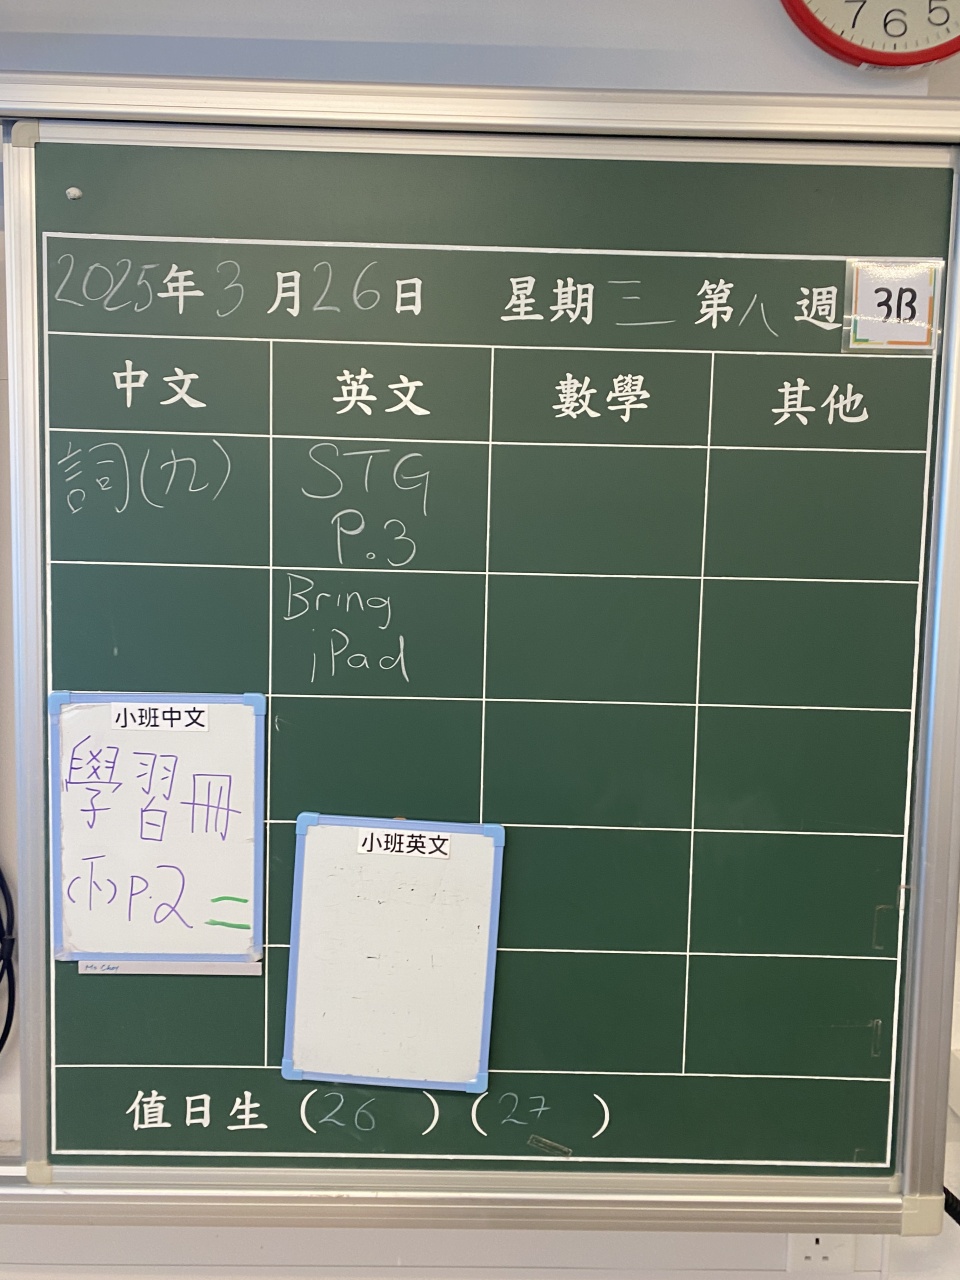 7 6 5
2025年3月26日 星期三 第八週 3B
中文 英文 數學 其他
詞(九)
STG
P.3
Bring
iPad
小班中文
學習冊
(下)P.2
小班英文
值日生 (26) (27)